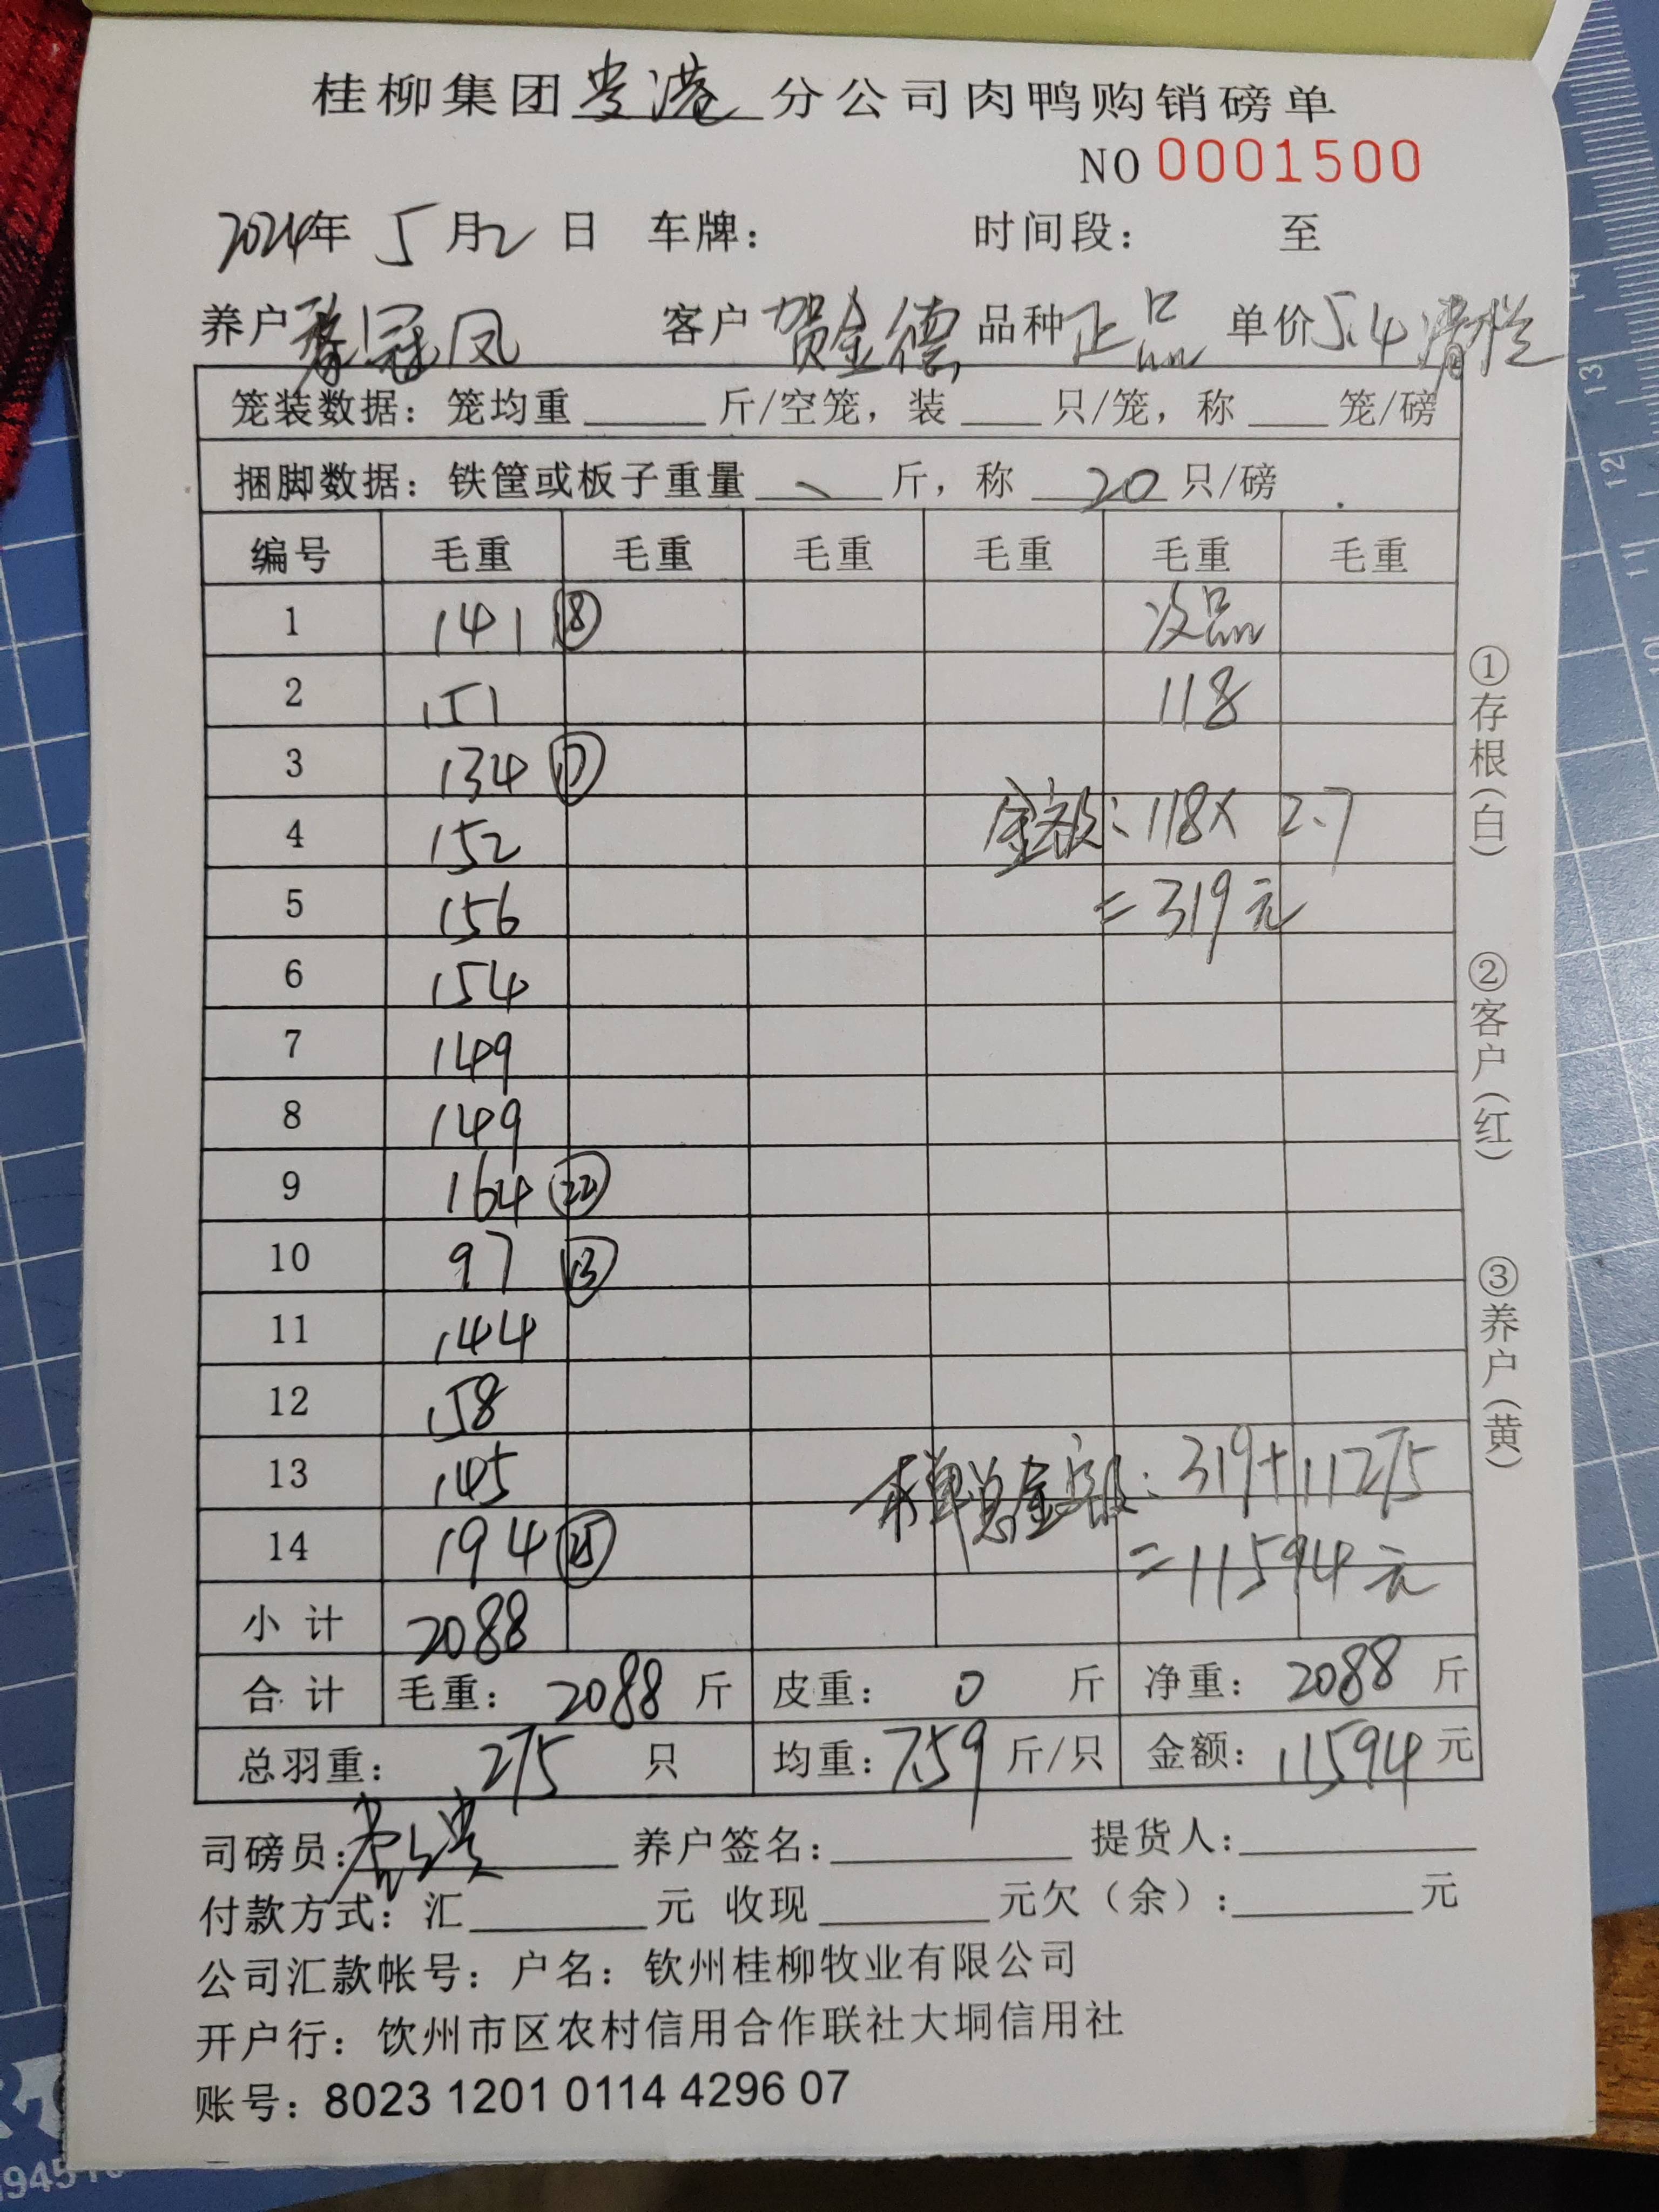 桂柳集团贵港分公司肉鸭购销磅单
NO 0001500
2024年 5月2日 车牌： 时间段： 至
养户 冠凤 客户 贺金德 品种 正品 单价 5.4 清栏
笼装数据：笼均重______斤/空笼，装____只/笼，称____笼/磅
捆脚数据：铁筐或板子重量 、 斤，称 20 只/磅
编号 毛重 毛重 毛重 毛重 毛重 毛重
1 141 ⑱ 次品
2 151 118
3 134 ⑰
4 152 金额：118× 2.7
5 156 = 319元
6 154
7 149
8 149
9 164 ㉒
10 97 ⑬
11 144
12 158
13 145 本单总金额：319+11275
14 194 ㉕ = 11594元
小计 2088
合计 毛重： 2088 斤 皮重： 0 斤 净重： 2088 斤
总羽重： 275 只 均重：7.59 斤/只 金额：11594元
司磅员： 养户签名： 提货人：
付款方式：汇______元 收现______元欠（余）：______元
公司汇款帐号：户名：钦州桂柳牧业有限公司
开户行：钦州市区农村信用合作联社大垌信用社
账号：8023 1201 0114 4296 07
①存根（白）
②客户（红）
③养户（黄）
13
12
11
10